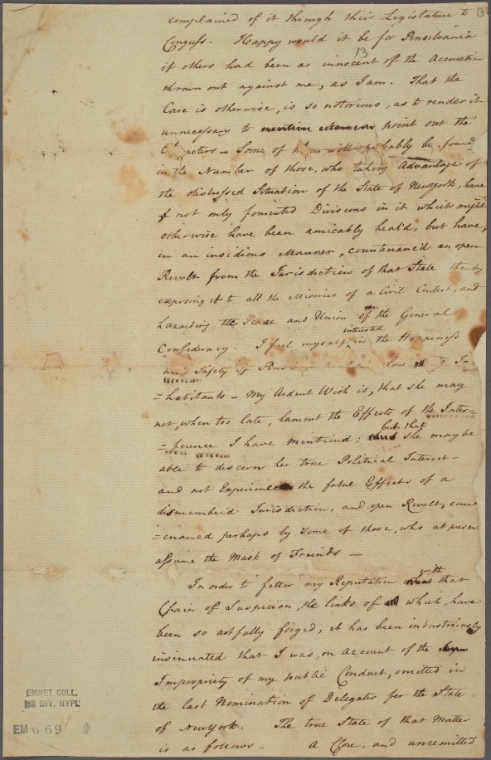 complained of it through their Legislature to
Congress. Happy would it be for Pensilvania
13
if others had been as innocent of the Accusation
thrown out against me, as I am. That the
Case is otherwise, is so notorious, as to render it
unnecessary to point out the
Some of probably be found
in the Number of those, who taking Advantage of
the distressed Situation of the State of Newyork, have
not only fomented Divisions in it which might
otherwise have been amicably heal'd, but have,
in an insidious Manner, countenanc'd an open
Revolt from the Jurisdiction of that State thereby
exposing it to all the Miseries of a Civil Contest, and
hazarding the Peace and Union of the General
Confederacy. I feel myself interested in the Happiness
and Safety of
=habitants – My Ardent Wish is, that she may
not, when too late, lament the Effects of the Inter=
=ference I have mentioned; but that she may be
able to discern her true Political Interest –
and not Experience the fatal Effects of a
dismember'd Jurisdiction, and open Revolt, coun
=enanced perhaps by some of those, who at presen
assume the Mask of Friends –
In order to fetter my Reputation with that
Chain of Suspicion, the links of which, have
been so artfully forged, it has been industriously
insinuated that I was, on Account of the
Impropriety of my public Conduct, omitted in
the last Nomination of Delegates for the State
of Newyork. The true State of that Matter
is as follows – A Close, and unremitted
EMMET COLL.
MS. DIV. NYPL
EM 669